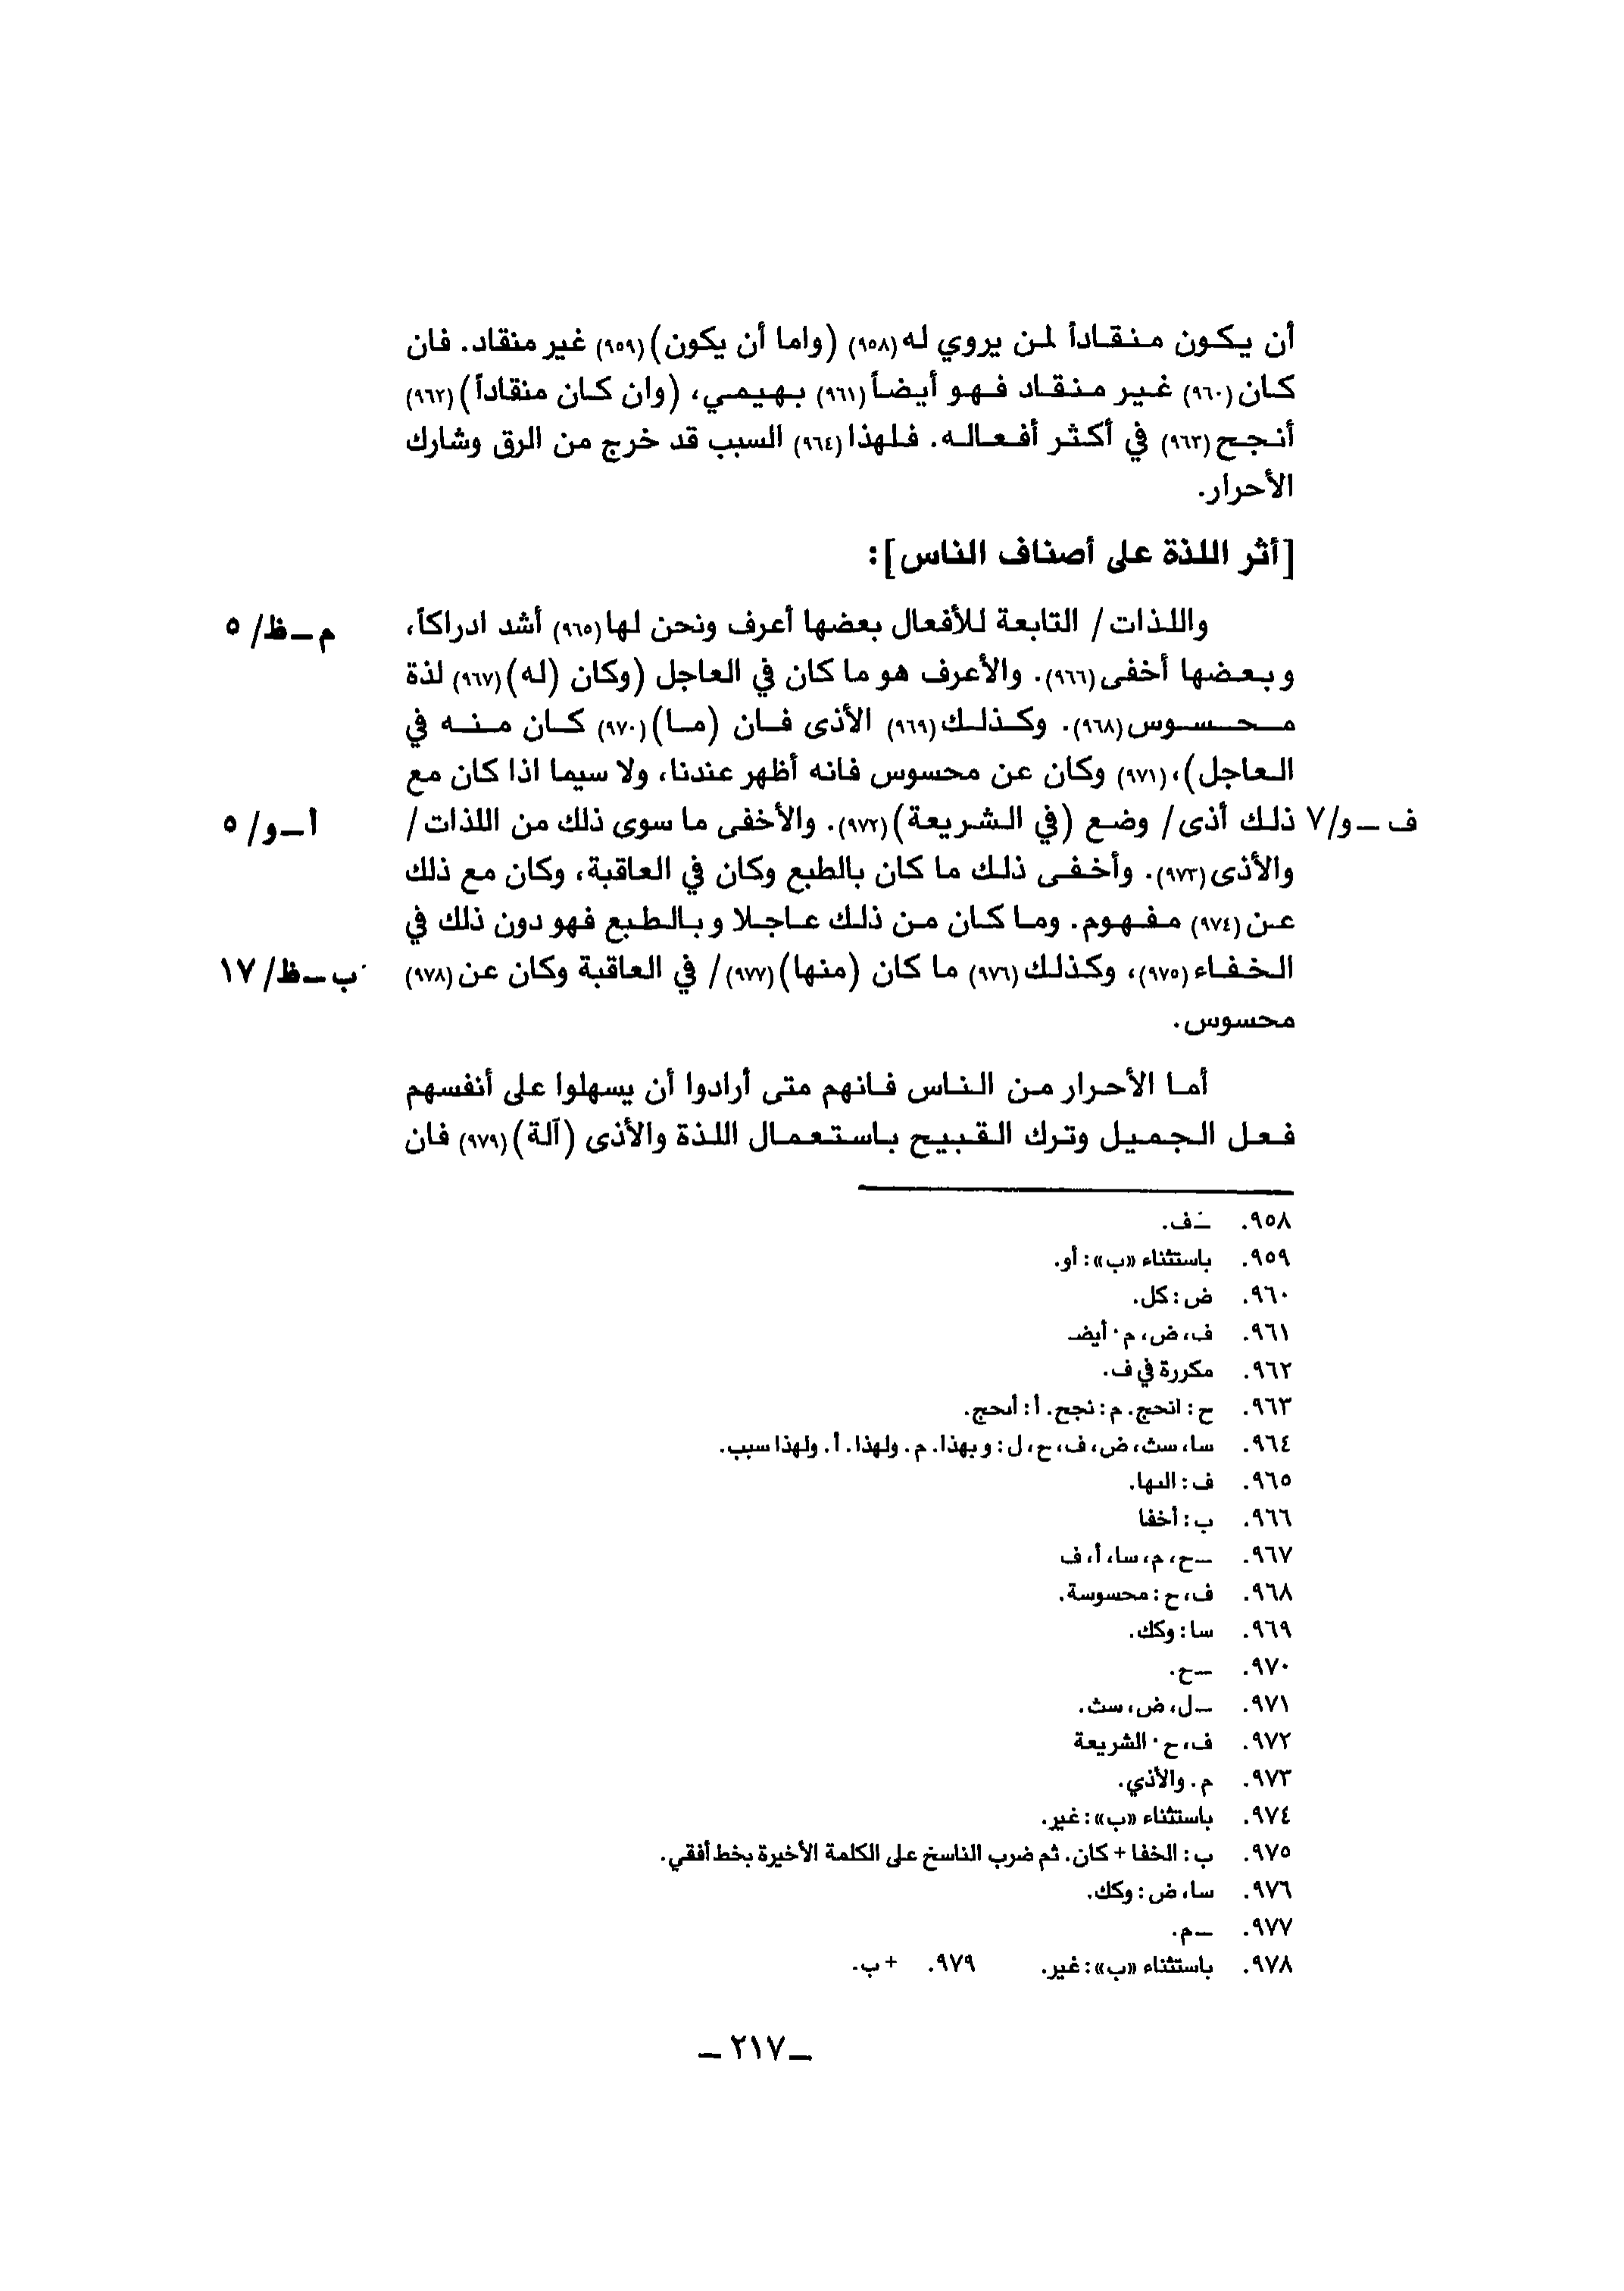 أن يكون منقاداً لمن يروي له(٩٥٨) (واما أن يكون)(٩٥٩) غير منقاد. فان
كان(٩٦٠) غير منقاد فهو أيضاً(٩٦١) بهيمي، (وان كان منقاداً)(٩٦٢)
أنجح(٩٦٣) في أكثر أفعاله. فلهذا(٩٦٤) السبب قد خرج من الرق وشارك
الأحرار.
[أثر اللذة على أصناف الناس]:
واللذات/ التابعة للأفعال بعضها أعرف ونحن لها(٩٦٥) أشد ادراكاً، م ــ ظ/ ٥
وبعضها أخفى(٩٦٦). والأعرف هو ما كان في العاجل (وكان (له)(٩٦٧) لذة
محسوس(٩٦٨). وكذلك(٩٦٩) الأذى فان (ما)(٩٧٠) كان منه في
العاجل)،(٩٧١) وكان عن محسوس فانه أظهر عندنا، ولا سيما اذا كان مع
ف ــ و/٧ ذلك أذى/ وضع (في الشريعة)(٩٧٢). والأخفى ما سوى ذلك من اللذات/ أ ــ و/ ٥
والأذى(٩٧٣). وأخفى ذلك ما كان بالطبع وكان في العاقبة، وكان مع ذلك
عن(٩٧٤) مفهوم. وما كان من ذلك عاجلا وبالطبع فهو دون ذلك في
الخفاء(٩٧٥)، وكذلك(٩٧٦) ما كان (منها)(٩٧٧)/ في العاقبة وكان عن(٩٧٨) ب ــ ظ/ ١٧
محسوس.
أما الأحرار من الناس فانهم متى أرادوا أن يسهلوا على أنفسهم
فعل الجميل وترك القبيح باستعمال اللذة والأذى (آلة)(٩٧٩) فان
٩٥٨. ــ ف.
٩٥٩. باستثناء «ب»: أو.
٩٦٠. ض: كل.
٩٦١. ف، ض، م. أيضـ
٩٦٢. مكررة في ف.
٩٦٣. ح: انحج. م: نجح. أ: أىحج.
٩٦٤. سا، سث، ض، ف، ح، ل: وبهذا. م. ولهذا. أ. ولهذا سبب.
٩٦٥. ف: الىها.
٩٦٦. ب: أخفا
٩٦٧. ــ ح، م، سا، أ، ف
٩٦٨. ف، ح: محسوسة.
٩٦٩. سا: وكك.
٩٧٠. ــ ح.
٩٧١. ــ ل، ض، سث.
٩٧٢. ف، ح. الشريعة
٩٧٣. م. والأذي.
٩٧٤. باستثناء «ب»: غير.
٩٧٥. ب: الخفا + كان. ثم ضرب الناسخ على الكلمة الأخيرة بخط أفقي.
٩٧٦. سا، ض: وكك.
٩٧٧. ــ م.
٩٧٨. باستثناء «ب»: غير. ٩٧٩. + ب.
ــ ٢١٧ ــ